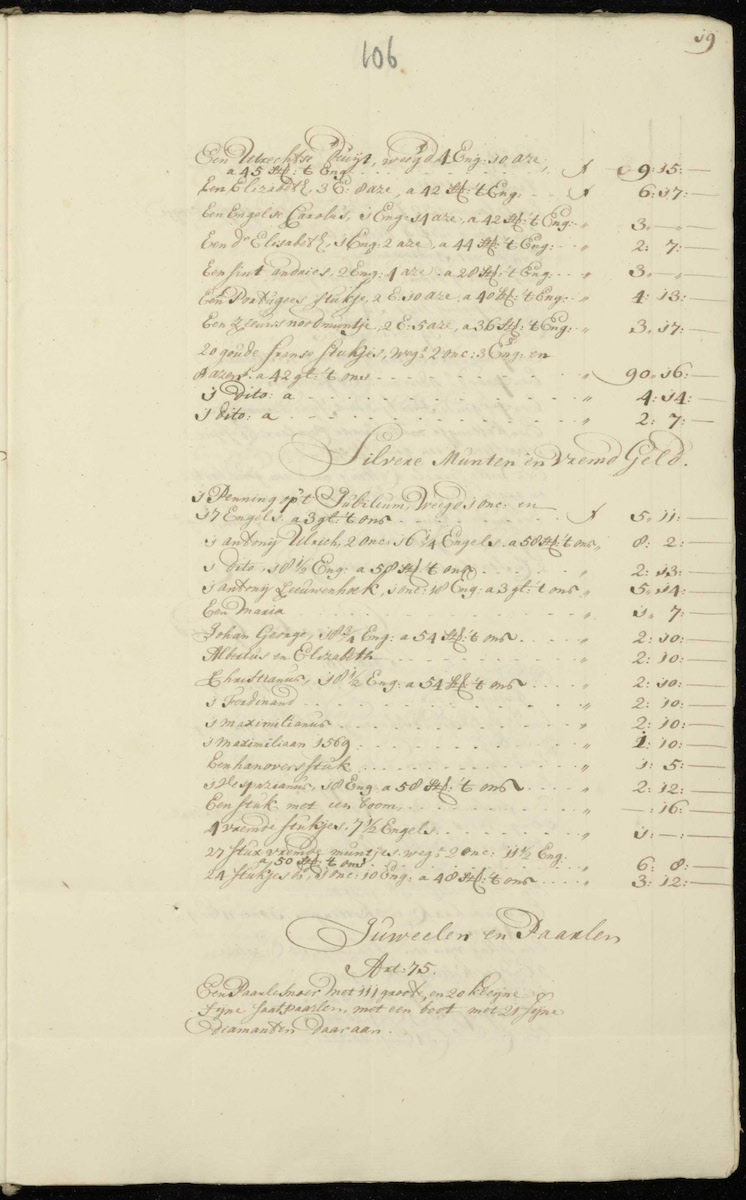 106
19
Een Utrechtse Duijt, weegd 4 Eng: 10 aze
a 45 st: 't Eng - - - f 9:15:—
Een Elizabeth, 3 E: 8 aze, a 42 st: 't Eng. - - - f 6:17:—
Een Engelse Carolus, 1 Eng: 14 aze, a 42 st: 't Eng: „ 3„—„—
Een do Elisabeth, 1 Eng: 2 aze, a 44 st: 't Eng: - - „ 2: 7:—
Een sint andries, 2 Eng: 4 aze: a 28 st: 't Eng - - „ 3„—„—
Een Portugees stukje, 2 E: 10 aze, a 40 st: 't Eng: - „ 4: 13:—
Een Zeeuws noodmuntje, 2 E: 5 aze, a 36 st: 't Eng: - „ 3„17:—
20 goude franse stukjes, wegt 2 onc: 3 Eng: en
8 azen: a 42 gl: 't ons - - - „ 90„16:—
1 dito: a - - - „ 4:14:—
1 dito: a - - - „ 2: 7:—
Silvere Munten en Vremd Geld.
1 Penning op 't Jubileum, Weegd 1 onc: en
17 Engels, a 3 gl: 't ons - - - f 5„11:—
1 antonij Ulrich, 2 onc: 16 1/4 Engels, a 58 st: 't ons „ 8: 2:—
1 dito, 18 1/2 Eng: a 58 st: 't ons - - - „ 2:13:—
1 antonij Leeuwenhoek, 1 onc: 18 Eng: a 3 gl: 't ons „ 5„14:—
Een Maria - - - „ 1„ 7:—
Johan George, 18 3/4 Eng: a 54 st: 't ons - - - „ 2:10:—
Albertus en Elizabeth - - - „ 2:10:—
Christianus, 18 1/2 Eng: a 54 st: 't ons - - - „ 2:10:—
1 Ferdinand - - - „ 2:10:—
1 maximilianus - - - „ 2:10:—
1 maximiliaan 1569 - - - „ 1:10:—
Een hanovers stuk - - - „ 1: 5:—
1 Vespazianus, 18 Eng: a 58 st: 't ons - - - „ 2:12:—
Een stuk met een boom - - - „ —:16:—
4 vremde stukjes, 7 1/2 Engels - - - „ 1:—:—
27 stux vremde muntjes wegt 2 onc: 11 1/2 Eng.
a 50 st: 't ons - - - „ 6: 8:—
24 stukjes 1 onc: 10 Eng: a 48 st: 't ons - - - „ 3:12:—
Juweelen en Paarlen
Art: 75.
Een Paarlesnoer met 111 groote, en 20 kleijne
fijne saatpaarlen, met een boot met 21 fijne
diamanten daaraan.